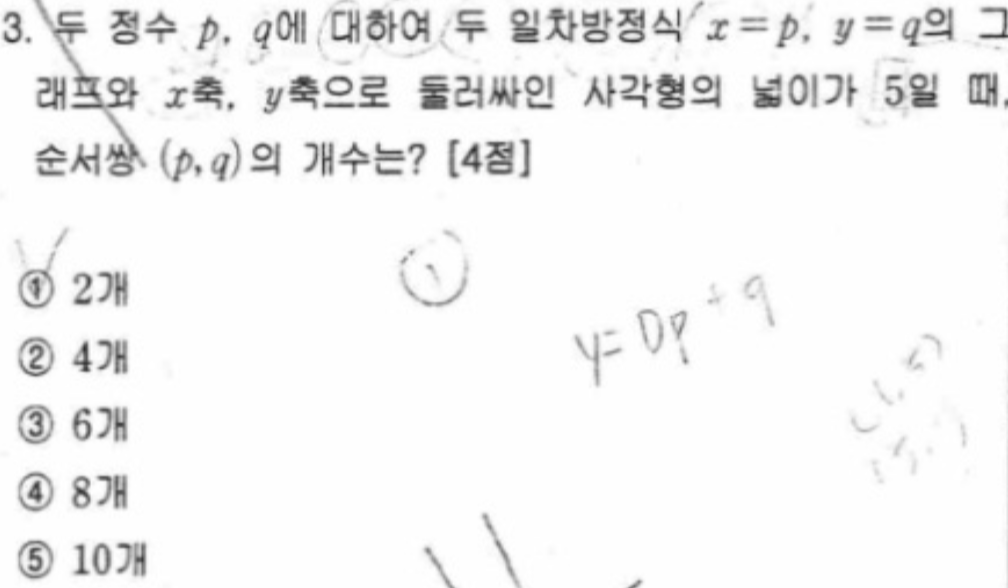 3. 두 정수 p, q에 대하여 두 일차방정식 x=p, y=q의 그
래프와 x축, y축으로 둘러싸인 사각형의 넓이가 5일 때,
순서쌍 (p, q)의 개수는? [4점]
① 2개
①
y= 0p + q
② 4개
(1, 5)
③ 6개
④ 8개
⑤ 10개